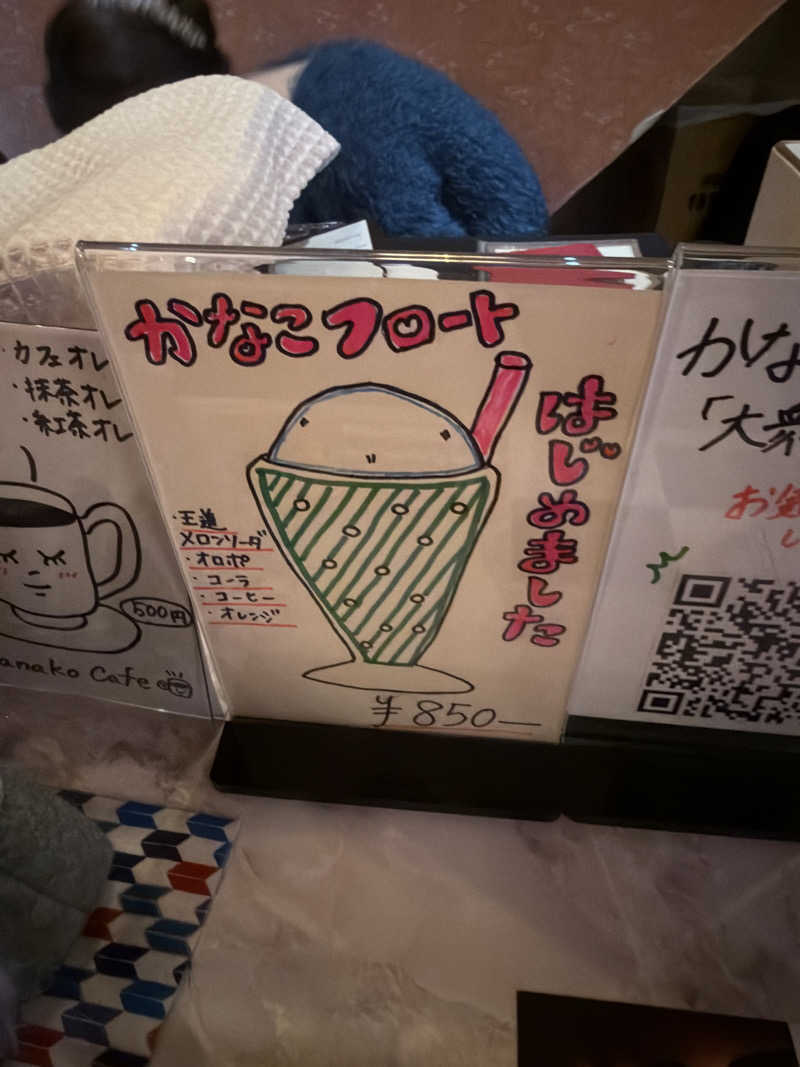 かなこフロート
はじめました
・王道
メロンソーダ
・オロポ
・コーラ
・コーヒー
・オレンジ
¥850―
・カフェオレ
・抹茶オレ
・紅茶オレ
500円
anako Cafe
かな
「大衆